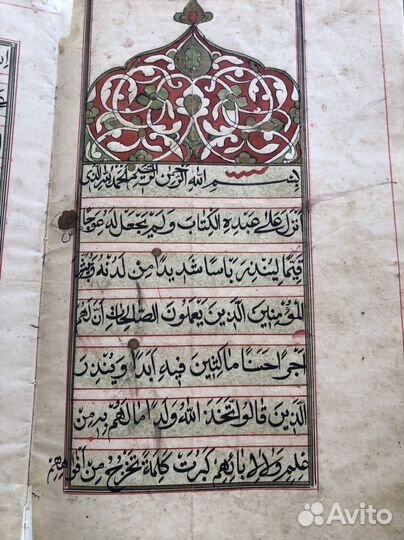 بِسْمِ اللهِ الرَّحْمٰنِ الرَّحِيْمِ اَلْحَمْدُ لِلّٰهِ الَّذِي
اَنْزَلَ عَلٰى عَبْدِهِ الْكِتَابَ وَلَمْ يَجْعَلْ لَهُ عِوَجًا
قَيِّمًا لِيُنْذِرَ بَاْسًا شَدِيدًا مِنْ لَدُنْهُ وَيُبَشِّرَ
الْمُؤْمِنِينَ الَّذِينَ يَعْمَلُونَ الصَّالِحَاتِ اَنَّ لَهُمْ
اَجْرًا حَسَنًا مَاكِثِينَ فِيهِ اَبَدًا وَيُنْذِرَ
الَّذِينَ قَالُوا اتَّخَذَ اللهُ وَلَدًا مَا لَهُمْ بِهِ مِنْ
عِلْمٍ وَلَا لِاٰبَائِهِمْ كَبُرَتْ كَلِمَةً تَخْرُجُ مِنْ اَفْوَاهِهِمْ
Avito